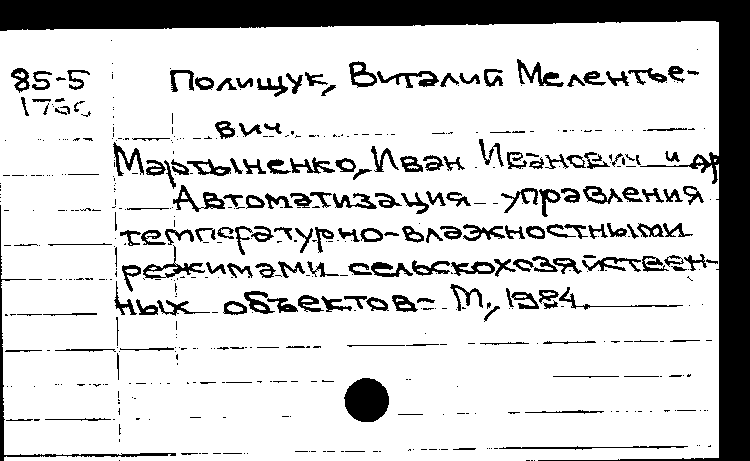 85-5
Полищук, Виталий Мелентье-
вич.
Мартыненко, Иван Иванович и др
Автоматизация управления
температурно-влажностными
режимами сельскохозяйствен-
ных объектов - М., 1984.